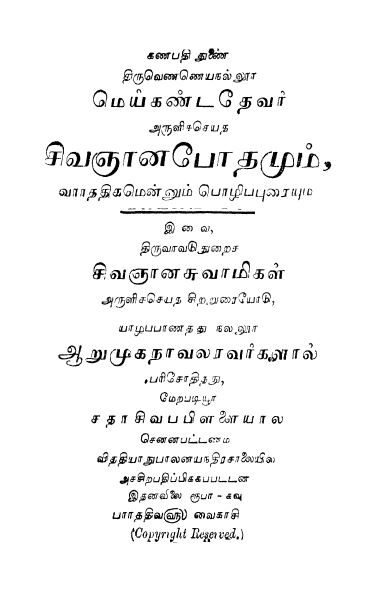 கணபதி துணை
திருவெண்ணெயநல்லூர்
மெய்கண்டதேவர்
அருளிச்செய்த
சிவஞானபோதமும்,
வார்த்திகமென்னும் பொழிப்புரையும்
இவை,
திருவாவடுதுறைச்
சிவஞானசுவாமிகள்
அருளிச்செய்த சிற்றுரையோடு,
யாழ்ப்பாணத்து நல்லூர்
ஆறுமுகநாவலரவர்களால்
பரிசோதித்து,
மேற்படியூர்
சதாசிவப்பிள்ளையால்
சென்னபட்டணம்
வித்தியாநுபாலனயந்திரசாலையில்
அச்சிற்பதிப்பிக்கப்பட்டன
இதன்விலை ரூபா - கவு
பார்த்திவளு வைகாசி
(Copyright Reserved.)